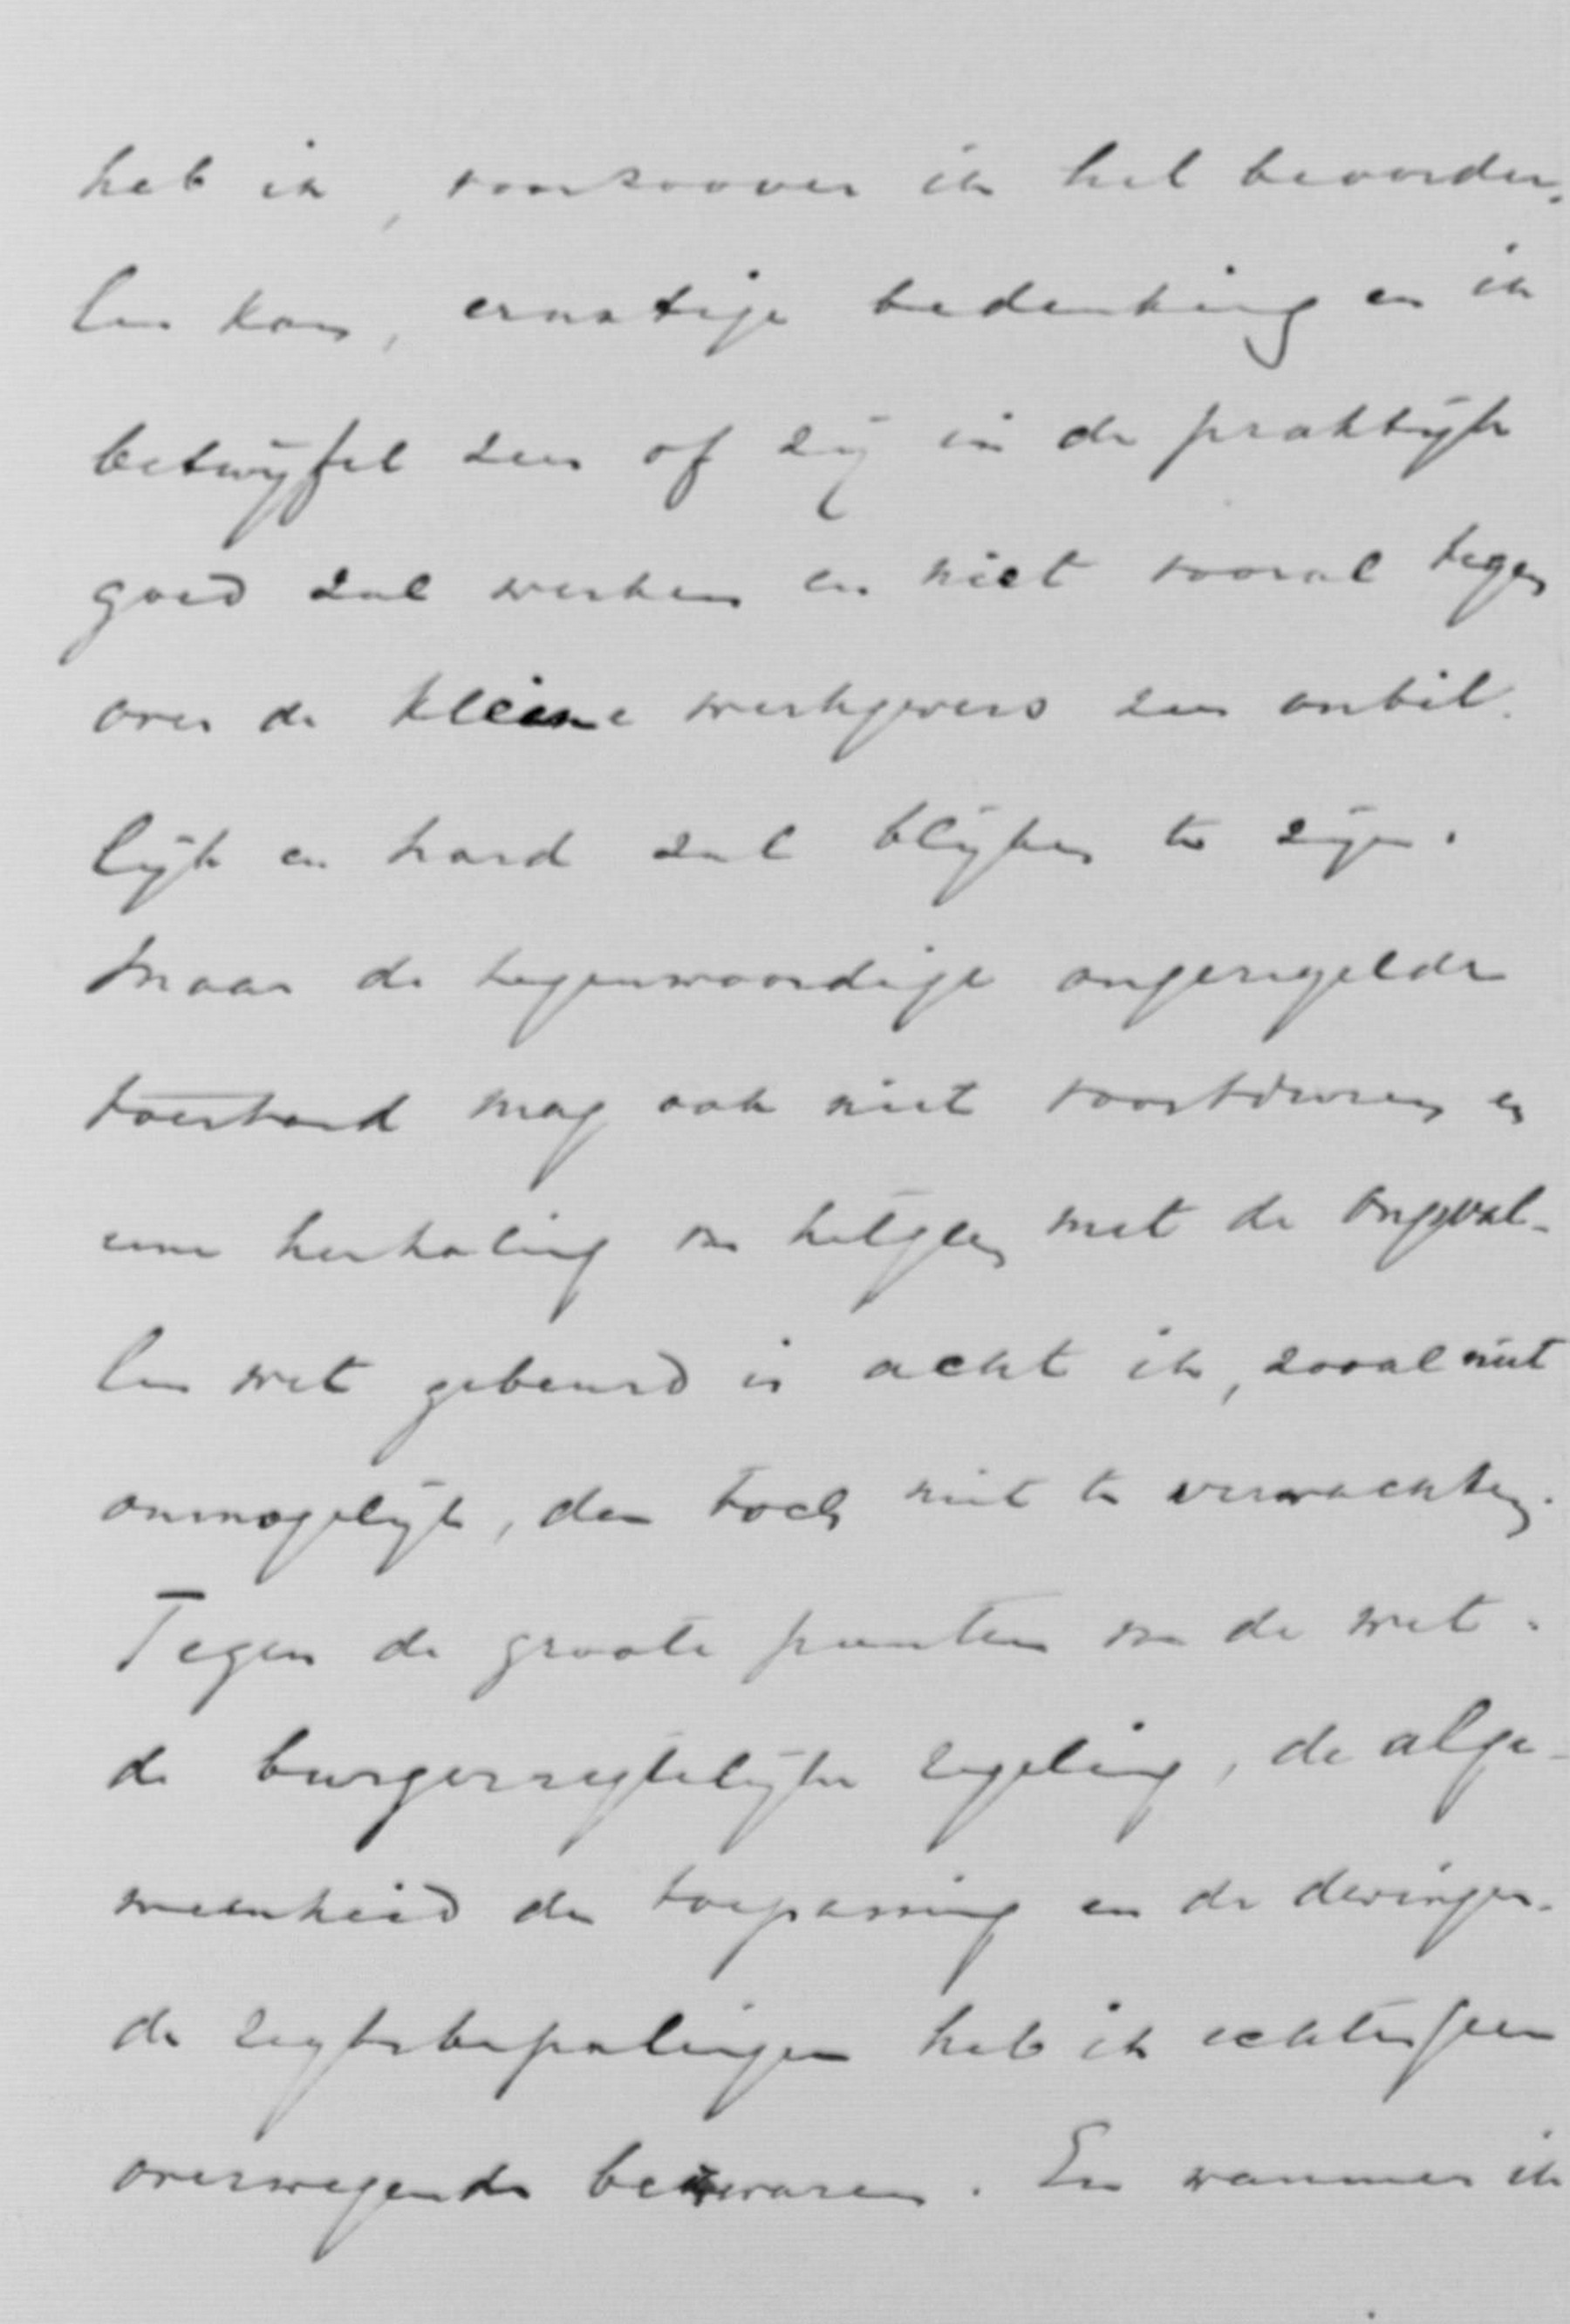 heb ik, voorzoover ik het beoorde-
len kan, ernstige bedenking en ik
betwijfel zeer of zij in de praktijk
goed zal werken en niet vooral tegen
over de kleine werkgevers zeer onbil-
lijk en hard zal blijken te zijn.
Maar de tegenwoordige ongeregelde
toestand mag ook niet voortduren en
eene herhaling van hetgeen met de Ongeval-
len wet gebeurd is acht ik, zooal niet
onmogelijk, dan toch niet te verwachten.
Tegen de groote punten van de wet:
de burgerregtelijke regeling, de alge-
meenheid der toepassing en de dwingen-
de regtsbepalingen heb ik echter geen
overwegende bezwaren. En wanneer ik